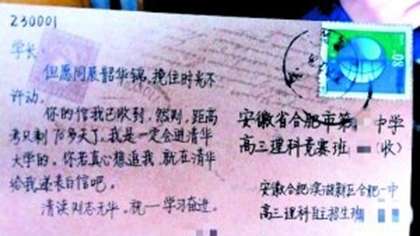 230001
学长:
但愿同展韶华锦,挽住时光不
许动.
你的信我已收到,然则,距高
考只剩70多天了,我是一定会进清华
大学的,你若真心想追我,就在清华
给我递来自信吧.
清泼刘志无华,祝一学习奋进.
80
安徽省合肥市第 中学
高三理科竞赛班 (收)
安徽合肥滨湖新区合肥一中
高三理科自主招生班